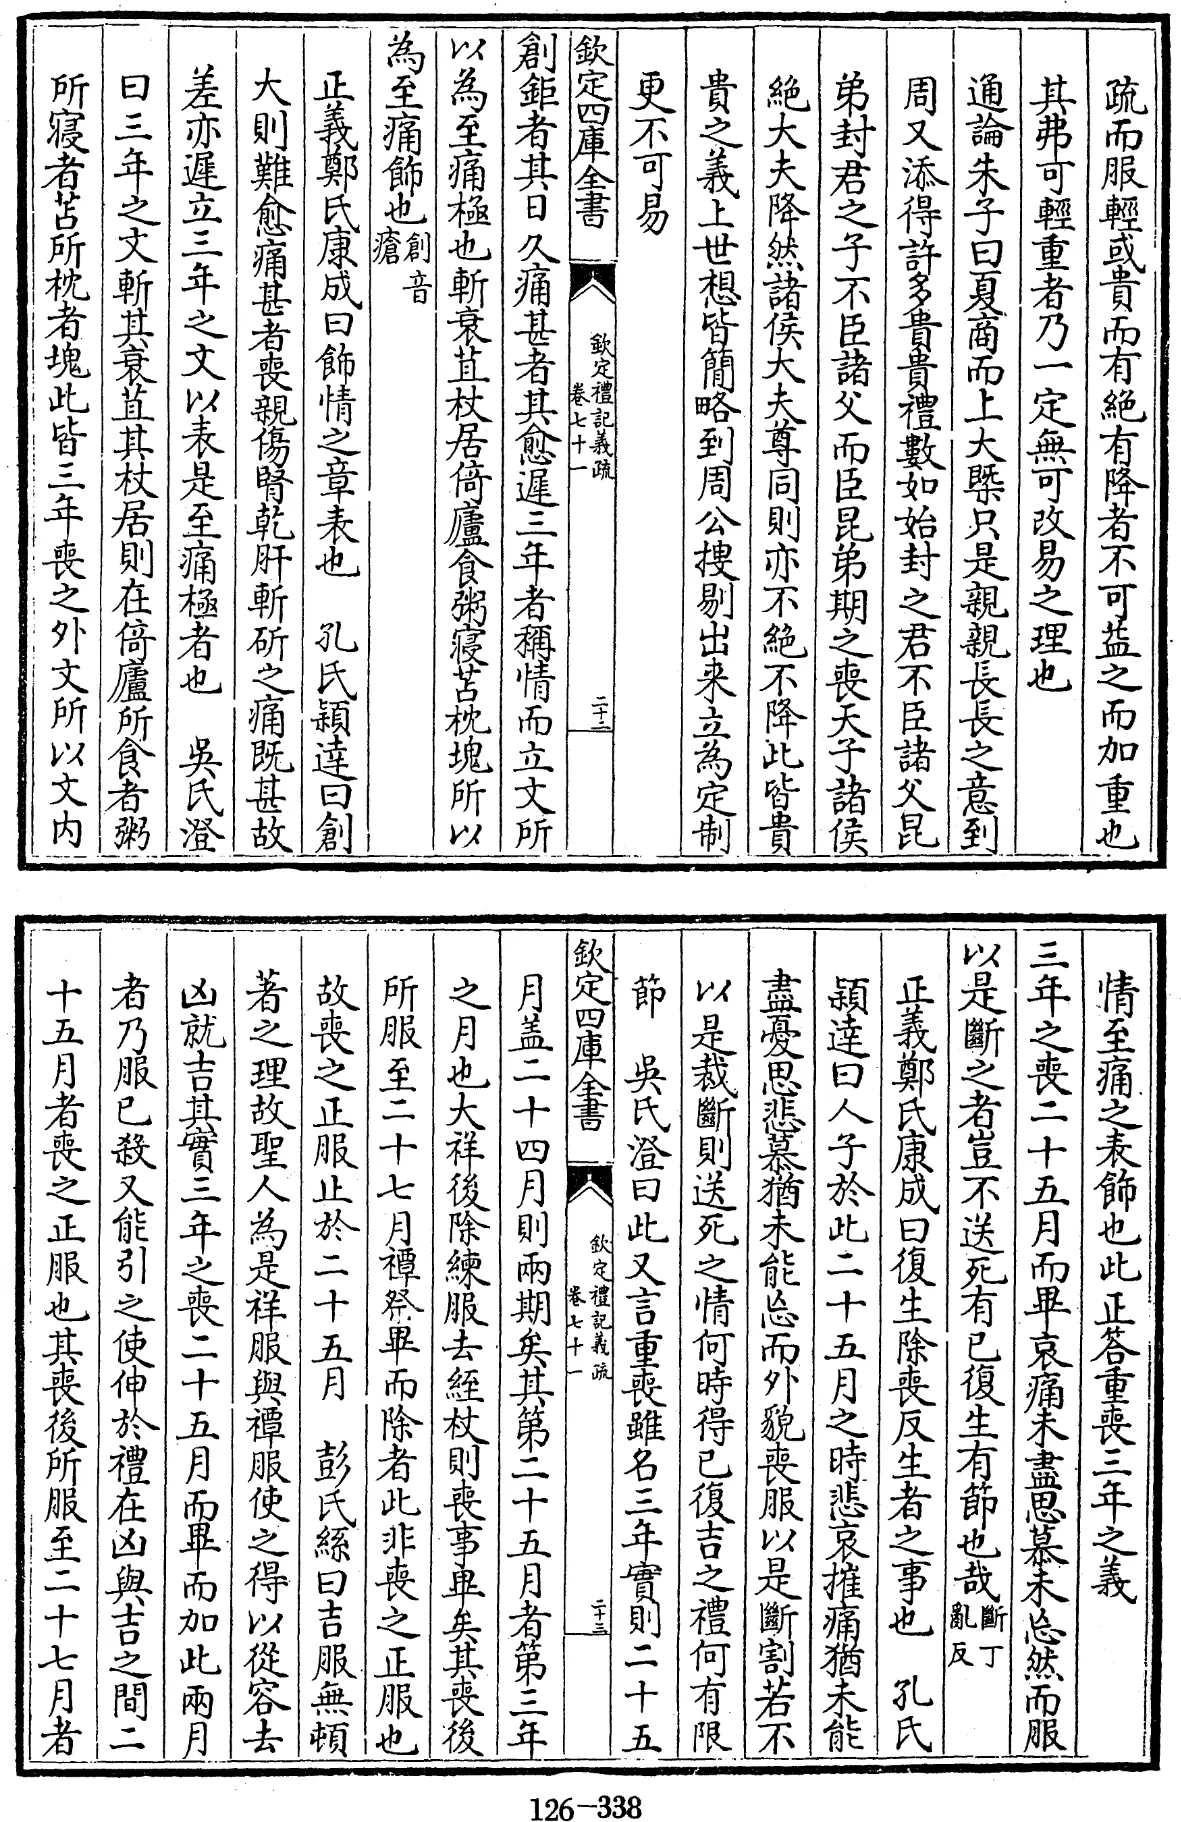 疏而服輕或貴而有絶有降者不可益之而加重也
其弗可輕重者乃一定無可改易之理也
通論朱子曰夏商而上大槩只是親親長長之意到
周又添得許多貴貴禮數如始封之君不臣諸父昆
弟封君之子不臣諸父而臣昆弟期之喪天子諸侯
絶大夫降然諸侯大夫尊同則亦不絶不降此皆貴
貴之義上世想皆簡略到周公搜剔出来立為定制
更不可易
欽定四庫全書
欽定禮記義疏
卷七十一
二十二
創鉅者其日久痛甚者其愈遲三年者稱情而立文所
以為至痛極也斬衰苴杖居倚廬食粥寢苫枕塊所以
為至痛飾也創音瘡
正義鄭氏康成曰飾情之章表也 孔氏穎達曰創
大則難愈痛甚者喪親傷腎乾肝斬斫之痛既甚故
差亦遲立三年之文以表是至痛極者也 吳氏澄
曰三年之文斬其衰苴其杖居則在倚廬所食者粥
所寢者苫所枕者塊此皆三年喪之外文所以文内
情至痛之表飾也此正答重喪三年之義
三年之喪二十五月而畢哀痛未盡思慕未忘然而服
以是斷之者豈不送死有已復生有節也哉斷丁亂反
正義鄭氏康成曰復生除喪反生者之事也 孔氏
穎達曰人子於此二十五月之時悲哀摧痛猶未能
盡憂思悲慕猶未能忘而外貌喪服以是斷割若不
以是裁斷則送死之情何時得已復吉之禮何有限
節 吳氏澄曰此又言重喪雖名三年實則二十五
欽定四庫全書
欽定禮記義疏
卷七十一
二十三
月盖二十四月則兩期矣其第二十五月者第三年
之月也大祥後除練服去絰杖則喪事畢矣其喪後
所服至二十七月禫祭畢而除者此非喪之正服也
故喪之正服止於二十五月 彭氏絲曰吉服無頓
著之理故聖人為是祥服與禫服使之得以從容去
凶就吉其實三年之喪二十五月而畢而加此兩月
者乃服已殺又能引之使伸於禮在凶與吉之間二
十五月者喪之正服也其喪後所服至二十七月者
126-338